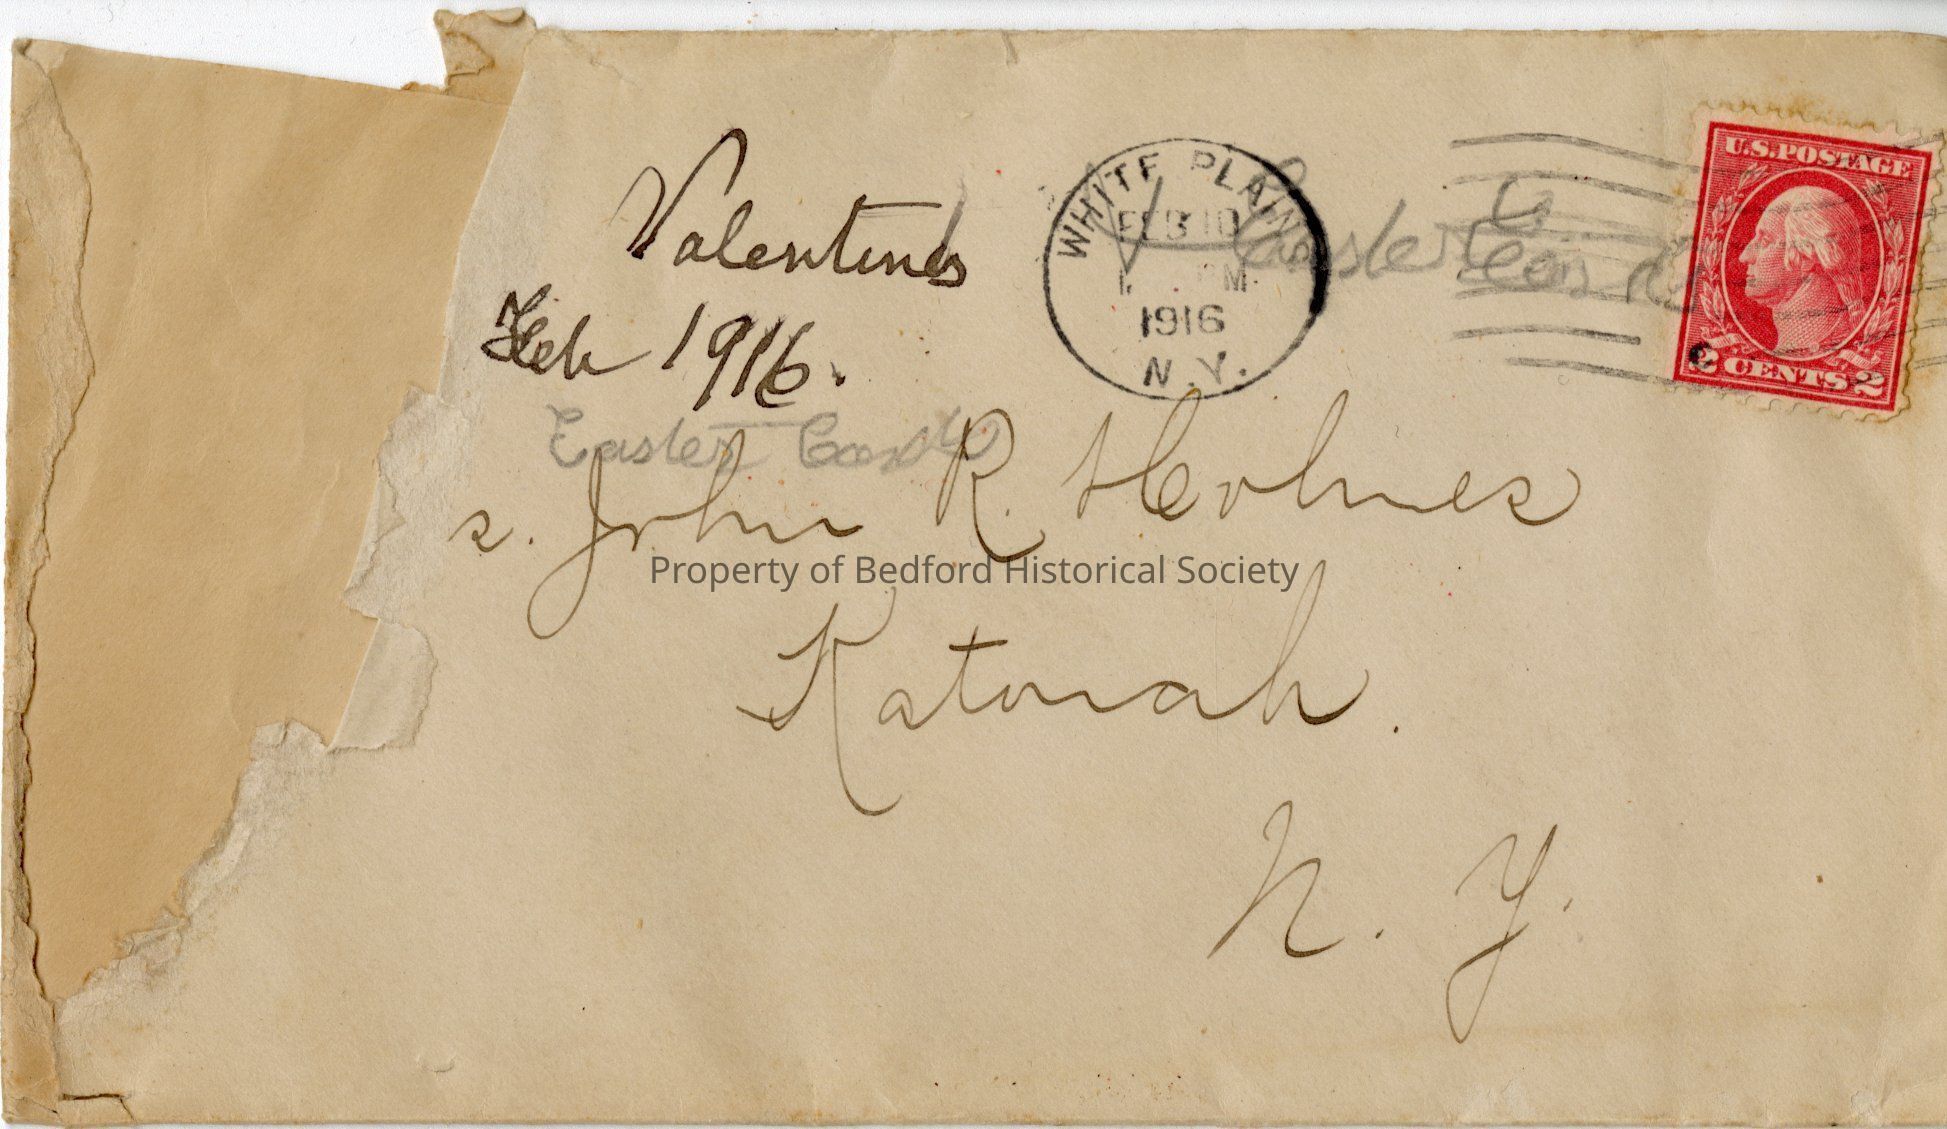 U.S. POSTAGE
2 CENTS 2
WHITE PLAINS
FEB 10
PM
1916
N.Y.
Valentines
Feb 1916.
Easter Cards
s. John R. Holmes
Property of Bedford Historical Society
Katonah.
N. Y.